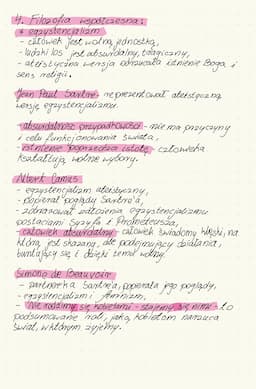 4. Filozofia współczesna:
* egzystencjalizm
- człowiek jest wolną jednostką,
- ludzki los jest absurdalny, tragiczny,
- ateistyczna wersja odrzucała istnienie Boga i
sens religii.
Jean Paul Sartre reprezentował ateistyczną
wersję egzystencjalizmu.
- absurdalność przypadkowości - nie ma przyczyny
i celu funkcjonowania świata,
- istnienie poprzedza istotę - człowieka
kształtują wolne wybory.
Albert Camus
- egzystencjalizm ateistyczny,
- popierał poglądy Sartre'a,
- zobrazował założenia egzystencjalizmu
postaciami Syzyfa i Prometeusza,
- człowiek absurdalny - człowiek świadomy klęski, na
którą jest skazany, ale podejmujący działania,
buntujący się i dzięki temu wolny.
Simone de Beauvoir
- partnerka Sartre'a, popierała jego poglądy,
- egzystencjalizm i feminizm,
- Nie rodzimy się kobietami - stajemy się nimi - to
podsumowanie roli, jaką kobietom narzuca
świat, w którym żyjemy.